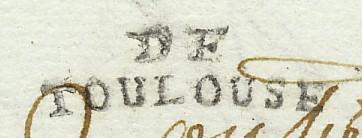 DE
TOULOUSE